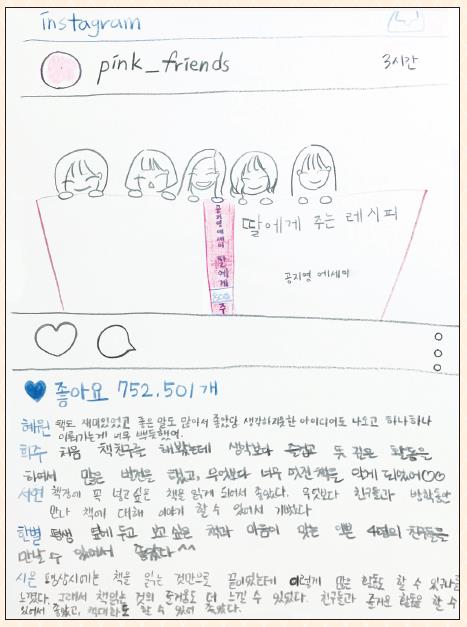 instagram
pink_friends
3시간
공지영 에세이 딸에게 주
딸에게 주는 레시피
공지영 에세이
좋아요 752,501개
혜원 책도 재미있었고 좋은 말도 많아서 좋았당 생각하지못한 아이디어도 나오고 하나하나
이뤄가는게 너무 뿌듯했어.
희주 처음 책친구를 해봤는데 생각보다 즐겁고 뜻 깊은 활동을
하여서 많은 발전을 했고, 무엇보다 너무 멋진 책을 알게 되었어
서연 책장에 꼭 넣고 싶은 책을 읽게 되어서 좋았다. 무엇보다 친구들과 방학동안
만나 책에 대해 이야기 할 수 있어서 기쁘다
한별 평생 옆에 두고 보고 싶은 책과 마음이 맞는 예쁜 4명의 친구들을
만날 수 있어서 좋았다^^
시은 평상시에는 책을 읽는 것만으로 끝이었는데 이렇게 많은 활동도 할 수 있구나를
느꼈다. 그래서 책읽는 것의 즐거움도 더 느낄 수 있었다. 친구들과 즐거운 활동을 할 수
있어서 좋았고, 책대화도 할 수 있어 좋았다.